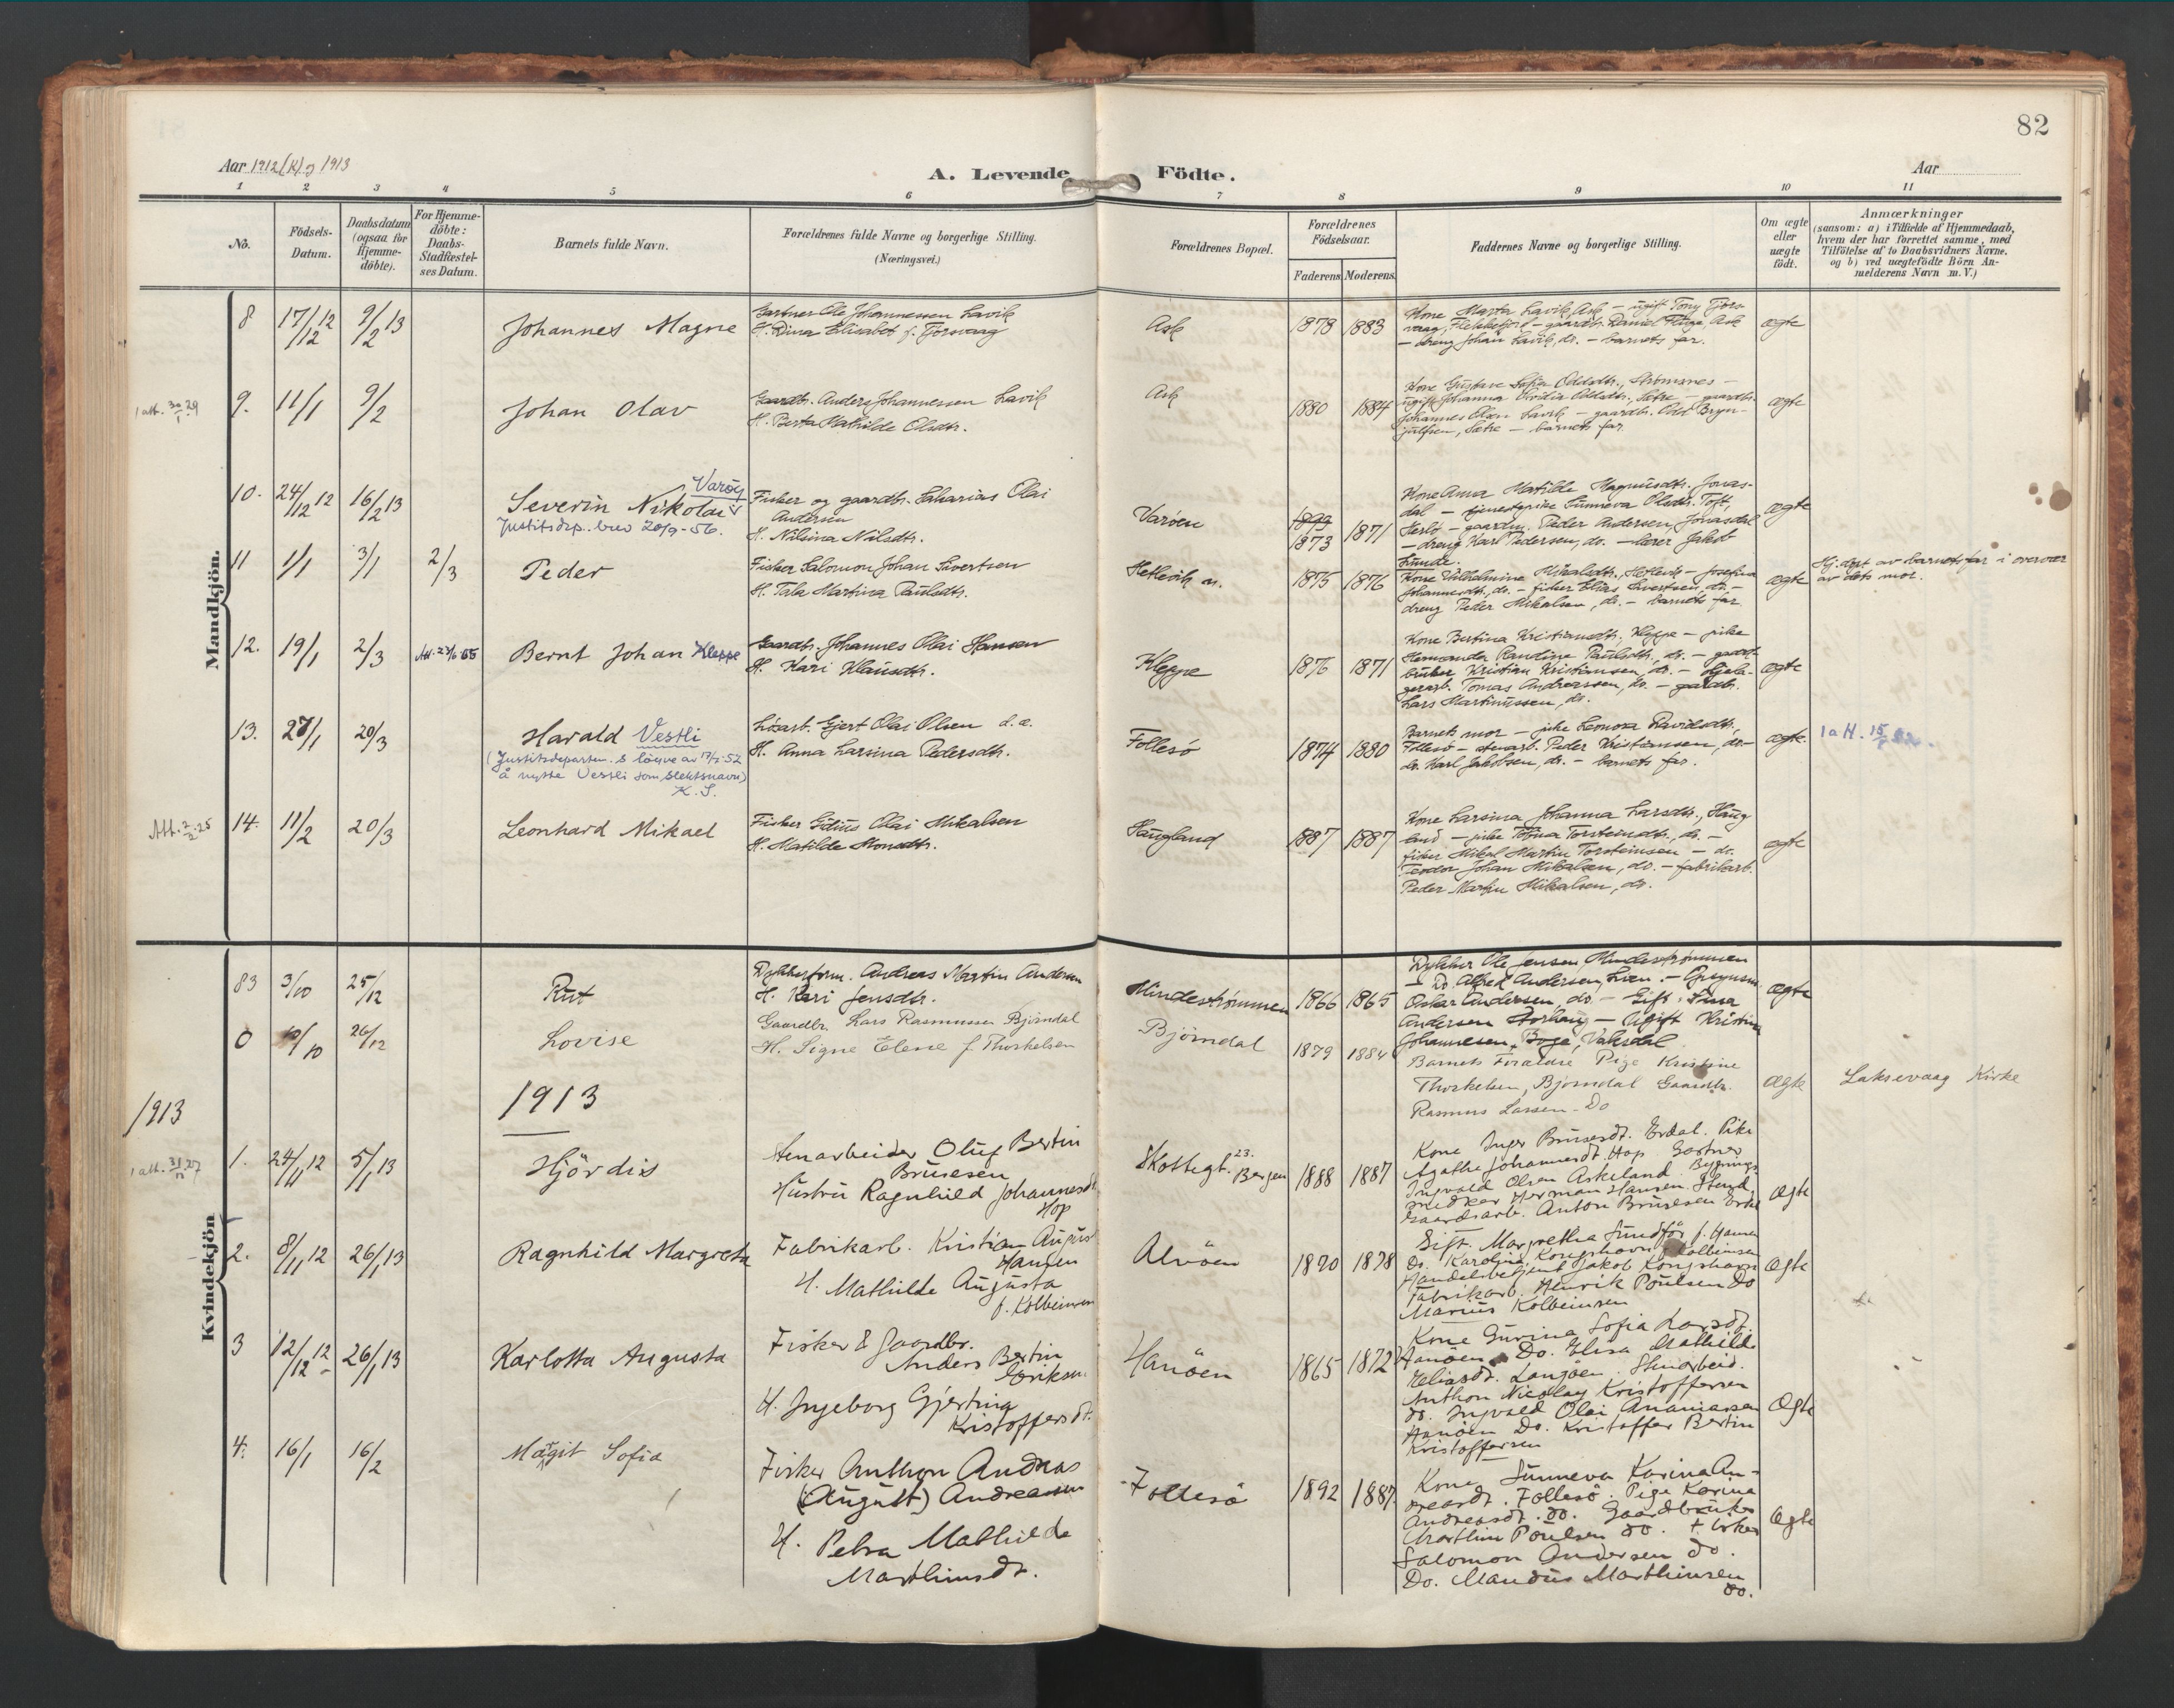 82
Aar 1912 (K) og 1913
A. Levende Födte.
Aar
1 2 3 4 5 6 7 8 9 10 11
No.
Födsels-
Datum.
Daabsdatum
(ogsaa for
Hjemme-
döbte).
For Hjemme-
döbte:
Daabs-
Stadfæstel-
ses Datum.
Barnets fulde Navn.
Forældrenes fulde Navne og borgerlige Stilling.
(Næringsvei.)
Forældrenes Bopæl.
Forældrenes
Födselsaar.
Faderens Moderens
Faddernes Navne og borgerlige Stilling.
Om ægte
eller
uægte
födt.
Anmærkninger
(saasom: a) i Tilfælde af Hjemmedaab,
hvem der har forrettet samme, med
Tilföielse af to Daabsvidners Navne,
og b) ved uægtefödte Börn An-
melderens Navn m. V.)
Mandkjön.
8 17/12 12 9/2 13
Johannes Magne
Gartner Ole Johannessen Lavik
H. Dina Elisabet f. Tjorsvaag
Ask
1878 1883
Kone Marta Lavik, Ask – ugift Tony Tjors-
vaag, Flekkefjord – gaardbr. Daniel Fluge, Ask
– dreng Johan Lavik, do. – barnets far.
ægte
1 att. 30/1 29
9. 11/1 9/2
Johan Olav
Gaardbr. Anders Johannessen Lavik
H. Berta Mathilde Olsdtr.
Ask
1880 1884
Kone Gustava Sofia Oddsdtr., Strømsnes –
ugift Johanna Oldsdtr., Sætre – gaardbr.
Johannes Olsen Lavik – gaardbr. Odd Bryn-
julfsen, Sætre – barnets far
ægte
10. 24/12 12 16/2 13
Severin Nikolai Varöy
Justitsdep. brev 20/9-56.
Fisker og gaardbr. Sakarias Olai
Andersen
H. Nilsina Nilsdtr.
Varöen
1899
1873 1871
Kone Anna Matilde Magnusdtr. Jonas-
dal – tjenestepike Sunneva Olsdtr. Toft,
Herlö – gaardm. Peder Andersen, Jonasdal
– dreng Karl Pedersen, do. – lærer Jakob
Lunde.
ægte
11 1/1 3/1 2/3
Peder
Fisker Salomon Johan Sivertsen
H. Tala Martina Paulsdtr.
Hetlevik
1875 1876
Kone Vilhelmine Mikalsdtr., Hetlevik – Josefina
Johannesdtr., do. – fisker Elias Sivertsen, do. –
dreng Peder Mikalsen, do. – barnets far
ægte
Hj. døpt av barnets far i overvær
av dets mor.
12. 19/1 2/3
Bernt Johan Kleppe
Gaardb. Johannes Olai Hansen
H. Kari Klausdtr.
Kleppe
1876 1871
Kone Bertina Kristiansdtr. Kleppe – pike
Hermanda Randine Paulsdtr., do. – gaard-
bruker Kristian Kristiansen, do. –
Tomas Andreassen, do. – gaardbr.
Lars Martinussen, do.
ægte
13. 27/1 20/3
Harald Vestli
(Justitsdeparten.s löyve av 17/7-52
å nytte Vestli som slektsnavn)
K. S.
Løsarb. Gjert Olai Olsen d. æ.
H. Anna Larsina Pedersdtr.
Follesö
1874 1880
Barnets mor – pike Leonora Davidsdtr.,
Follesö – stenarb. Peder Kristiansen, do. –
do. Karl Jakobsen, do. – barnets far.
ægte.
Att. 2/2 25
14. 11/2 20/3
Leonhard Mikael
Fisker Gidius Olai Mikalsen
H. Matilde Monsdtr.
Haugland
1887 1887
Kone Larsina Johanna Larsdtr., Haug-
land – pike Tomina Torsteindtr., do. –
fisker Mikal Martin Torsteinsen – do.
Teodor Johan Mikalsen, do. – fabrikarb.
Peder Martin Mikalsen, do.
ægte
Kvindekjön
83 3/10 25/12
Rut
Dykkerform. Andreas Martin Andersen
H. Kari Jensdtr.
Mindeströmmen
1866 1865
Dykker Ole Jensen Mindeströmmen
– Do. Alfred Andersen,
Oskar Andersen, do. – Gift
Andersen – Ugift Kristine
Johannesen, Boge, Vaksdal
ægte
0 19/10 26/12
Lovise
Gaardbr. Lars Rasmussen Björndal
H. Signe Elene f. Thorkelsen
Björndal
1879 1884
Barnets Forældre Pige Kristine
Thorkelsen, Björndal Gaardbr.
Rasmus Larsen – Do
ægte
Laksevaag Kirke
1913
1913
1 att. 31/11 27
1. 24/11 12 5/1 13
Hjördis
Stenarbeider Oluf Bertin
Brunesen
Hustru Ragnhild Johannesdt
Hop
Skottegt. 23.
Bergen
1888 1887
Kone Inger Brunesdt. Erdal. Pike
Agathe Johannesdt. Hop Gartner
Ingvald Olsen Askeland. Bygnings-
snedker Herman Hansen. Stend
Gaardsarb. Anton Brunesen Erdal
ægte
2. 8/11 12 26/1 13
Ragnhild Margreta
Fabrikarb. Kristian August
Hansen
H. Mathilde Augusta
f. Kolbeinsen
Alvöen
1870 1878
Gift. Margretha Sundför f. Hansen
Do. Karoline Kongshavn f. Kolbeinsen
Handelsbetjent Jakob Kongshavn
Fabrikarb. Henrik Poulsen Do
Marius Kolbeinsen
ægte
3 12/12 12 26/1 13
Karlotta Augusta
Fisker & Gaardbr.
Anders Bertin
Eriksen
H. Ingeborg Gjertina
Kristoffersdt.
Hanöen
1865 1872
Kone Gurina Sofia Larsdt.
Hanöen. Do. Elisa Mathilde
Eliasdt. Langöen. Stenarbeid.
Anthon Nicolay Kristoffersen
do. Ingvald Olai Ananiassen
Hanöen Do. Kristoffer Bertin
Kristoffersen
Ægte
4. 16/1 16/2
Margit Sofia
Fisker Anthon Andreas
(August) Andreassen
H. Petra Mathilde
Marthinsdt.
Follesö
1892 1887.
Kone Sunneva Karina An-
dreasdt. Follesö. Pige Karina
Andreasdt. do. Gaardbruker
Marthin Poulsen do. Fisker
Salomon Andersen do.
Do. Mandus Marthinsen
do.
Ægte